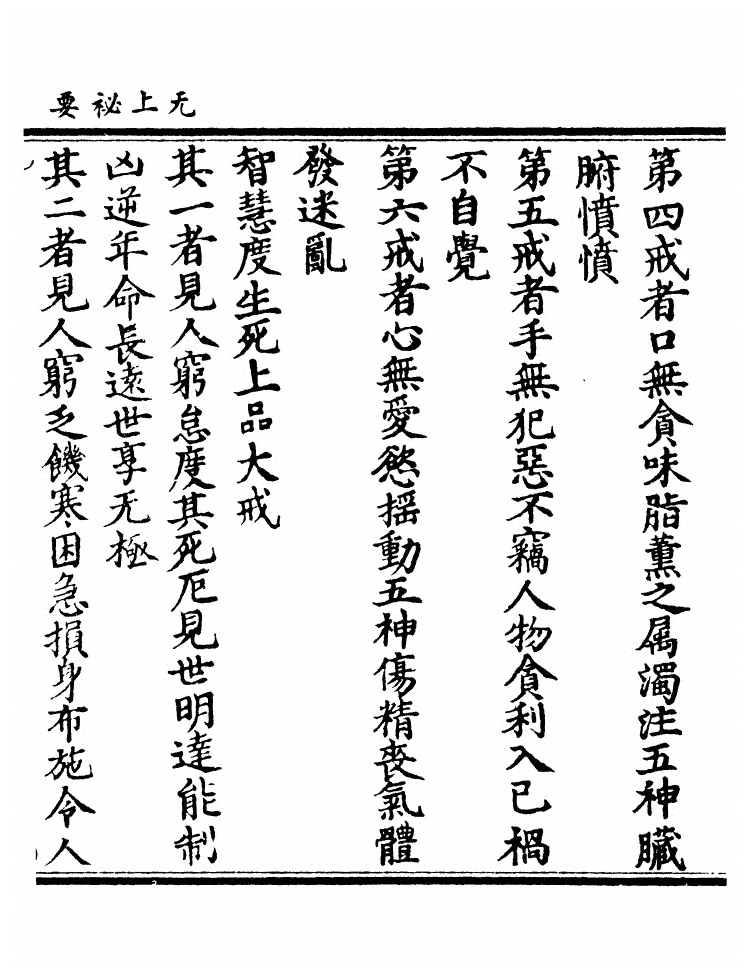 无上祕要
第四戒者口無貪味脂薰之属濁注五神臟
腑憒憒
第五戒者手無犯惡不竊人物貪利入己禍
不自覺
第六戒者心無愛慾搖動五神傷精喪氣體
發迷亂
智慧度生死上品大戒
其一者見人窮怠度其死厄見世明達能制
凶逆年命長遠世享无極
其二者見人窮乏饑寒困急損身布施令人